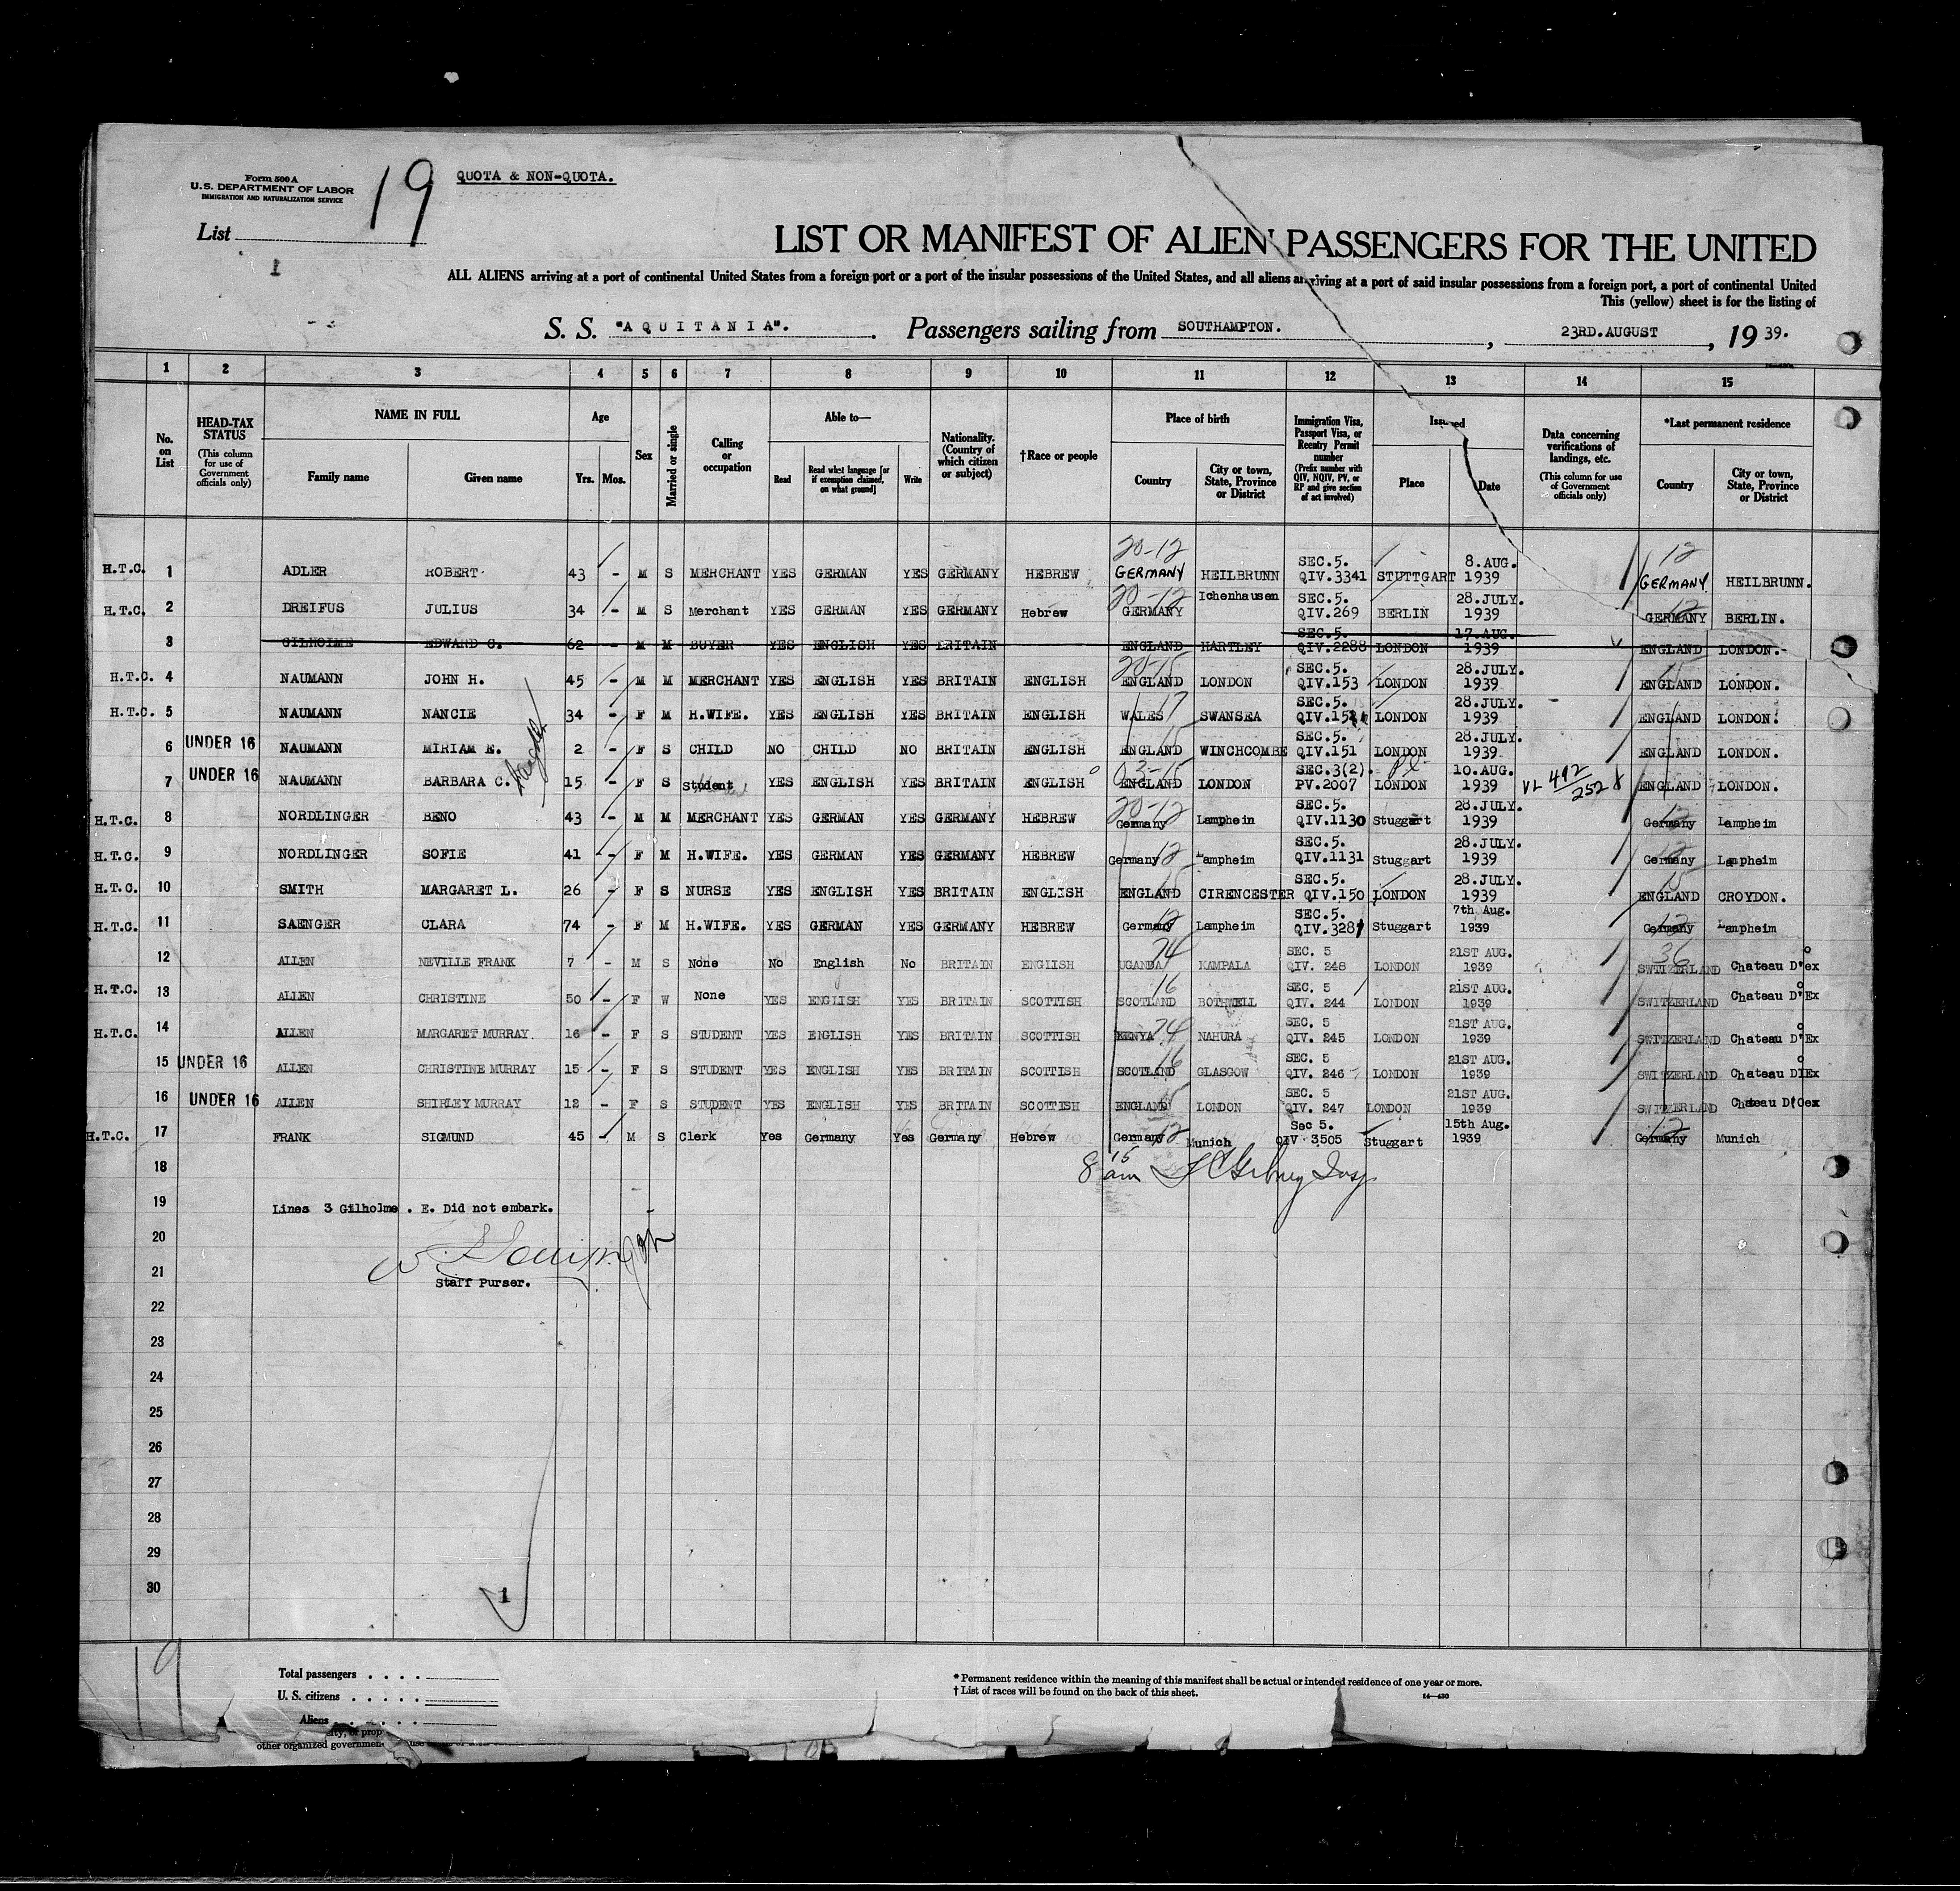 Form 500 A
U.S. DEPARTMENT OF LABOR
IMMIGRATION AND NATURALIZATION SERVICE
19
QUOTA & NON-QUOTA.
List
1
LIST OR MANIFEST OF ALIEN PASSENGERS FOR THE UNITED
ALL ALIENS arriving at a port of continental United States from a foreign port or a port of the insular possessions of the United States, and all aliens arriving at a port of said insular possessions from a foreign port, a port of continental United
This (yellow) sheet is for the listing of
S. S. "AQUITANIA". Passengers sailing from SOUTHAMPTON. , 23RD.AUGUST , 19 39.
1 2 3 4 5 6 7 8 9 10 11 12 13 14 15
No. on List
HEAD-TAX STATUS (This column for use of Government officials only)
NAME IN FULL
Family name Given name
Age
Yrs. Mos.
Sex
Married or single
Calling or occupation
Able to—
Read Read what language [or if exemption claimed, on what ground] Write
Nationality. (Country of which citizen or subject)
†Race or people
Place of birth
Country City or town, State, Province or District
Immigration Visa, Passport Visa, or Reentry Permit number (Prefix number with QIV, NQIV, PV, or RP and give section of act involved)
Issued
Place Date
Data concerning verifications of landings, etc. (This column for use of Government officials only)
*Last permanent residence
Country City or town, State, Province or District
H.T.C. 1 ADLER ROBERT 43 - M S MERCHANT YES GERMAN YES GERMANY HEBREW 20-12 GERMANY HEILBRUNN SEC.5. QIV.3341 STUTTGART 8.AUG. 1939 12 GERMANY HEILBRUNN.
H.T.C. 2 DREIFUS JULIUS 34 - M S Merchant YES GERMAN YES GERMANY Hebrew 20-12 GERMANY Ichenhausen SEC.5. QIV.269 BERLIN 28.JULY. 1939 12 GERMANY BERLIN.
3 GILHOLME EDWARD C. 62 M M BUYER YES ENGLISH YES BRITAIN ENGLAND HARTLEY SEC.5. QIV.2288 LONDON 17.AUG. 1939 ENGLAND LONDON.-
H.T.C. 4 NAUMANN JOHN H. 45 - M M MERCHANT YES ENGLISH YES BRITAIN ENGLISH 20-15 ENGLAND LONDON SEC.5. QIV.153 LONDON 28.JULY. 1939 15 ENGLAND LONDON.
H.T.C. 5 NAUMANN NANCIE 34 - F M H.WIFE. YES ENGLISH YES BRITAIN ENGLISH 17 WALES SWANSEA SEC.5. QIV.152 LONDON 28.JULY. 1939 ENGLAND LONDON.
6 UNDER 16 NAUMANN MIRIAM E. 2 - F S CHILD NO CHILD NO BRITAIN ENGLISH 15 ENGLAND WINCHCOMBE SEC.5. QIV.151 LONDON 28.JULY. 1939 ENGLAND LONDON.
7 UNDER 16 NAUMANN BARBARA C. daughter 15 - F S Student YES ENGLISH YES BRITAIN ENGLISH 03-15 ENGLAND LONDON SEC.3(2). PV.2007 LONDON 10.AUG. 1939 VL 492/252 ENGLAND LONDON.
H.T.C. 8 NORDLINGER BENO 43 - M M MERCHANT YES GERMAN YES GERMANY HEBREW 20-12 Germany Lamphein SEC.5. QIV.1130 Stuggart 28.JULY. 1939 12 Germany Lampheim
H.T.C. 9 NORDLINGER SOFIE 41 - F M H.WIFE. YES GERMAN YES GERMANY HEBREW 12 Germany Lampheim SEC.5. QIV.1131 Stuggart 28.JULY. 1939 12 Germany Lampheim
H.T.C. 10 SMITH MARGARET L. 26 - F S NURSE YES ENGLISH YES BRITAIN ENGLISH 15 ENGLAND CIRENCESTER SEC.5. QIV.150 LONDON 28.JULY. 1939 15 ENGLAND CROYDON.
H.T.C. 11 SAENGER CLARA 74 - F M H.WIFE. YES GERMAN YES GERMANY HEBREW 12 Germany Lampheim SEC.5. QIV.3287 Stuggart 7th Aug. 1939 12 Germany Lampheim
12 ALLEN NEVILLE FRANK 7 - M S None No English No BRITAIN ENGIISH 74 UGANDA KAMPALA SEC. 5 QIV. 248 LONDON 21ST AUG. 1939 36 SWTIZERLAND Chateau D'ex
H.T.C. 13 ALLEN CHRISTINE 50 - F W None YES ENGLISH YES BRITAIN SCOTTISH 16 SCOTLAND BOTHWELL SEC. 5 QIV. 244 LONDON 21ST AUG. 1939 SWITZERLAND Chateau D'Ex
H.T.C. 14 ALLEN MARGARET MURRAY. 16 - F S STUDENT YES ENGLISH YES BRITAIN SCOTTISH 74 KENYA NAHURA SEC. 5 QIV. 245 LONDON 21ST AUG. 1939 SWITZERLAND Chateau D'Ex
15 UNDER 16 ALLEN CHRISTINE MURRAY 15 - F S STUDENT YES ENGLISH YES BRITAIN SCOTTISH 16 SCOTLAND GLASGOW SEC. 5 QIV. 246 LONDON 21ST AUG. 1939 SWITZERLAND Chateau D'Ex
16 UNDER 16 ALLEN SHIRLEY MURRAY 12 - F S STUDENT YES ENGLISH YES BRITAIN SCOTTISH 15 ENGLAND LONDON SEC. 5 QIV. 247 LONDON 21ST AUG. 1939 SWITZERLAND Chateau D'Oex
H.T.C. 17 FRANK SIGMUND 45 - M S Clerk Yes Germany Yes Germany Hebrew 12 Germany Munich Sec 5. QIV 3505 Stuggart 15th Aug. 1939 12 Germany Munich
18 8 15 am
19 Lines 3 Gilholme . E. Did not embark.
20
21 Staff Purser.
22
23
24
25
26
27
28
29
30
1
Total passengers . . . .
U. S. citizens . . . . .
Aliens . . . . . .
* Permanent residence within the meaning of this manifest shall be actual or intended residence of one year or more.
† List of races will be found on the back of this sheet.
14—430
other organized government